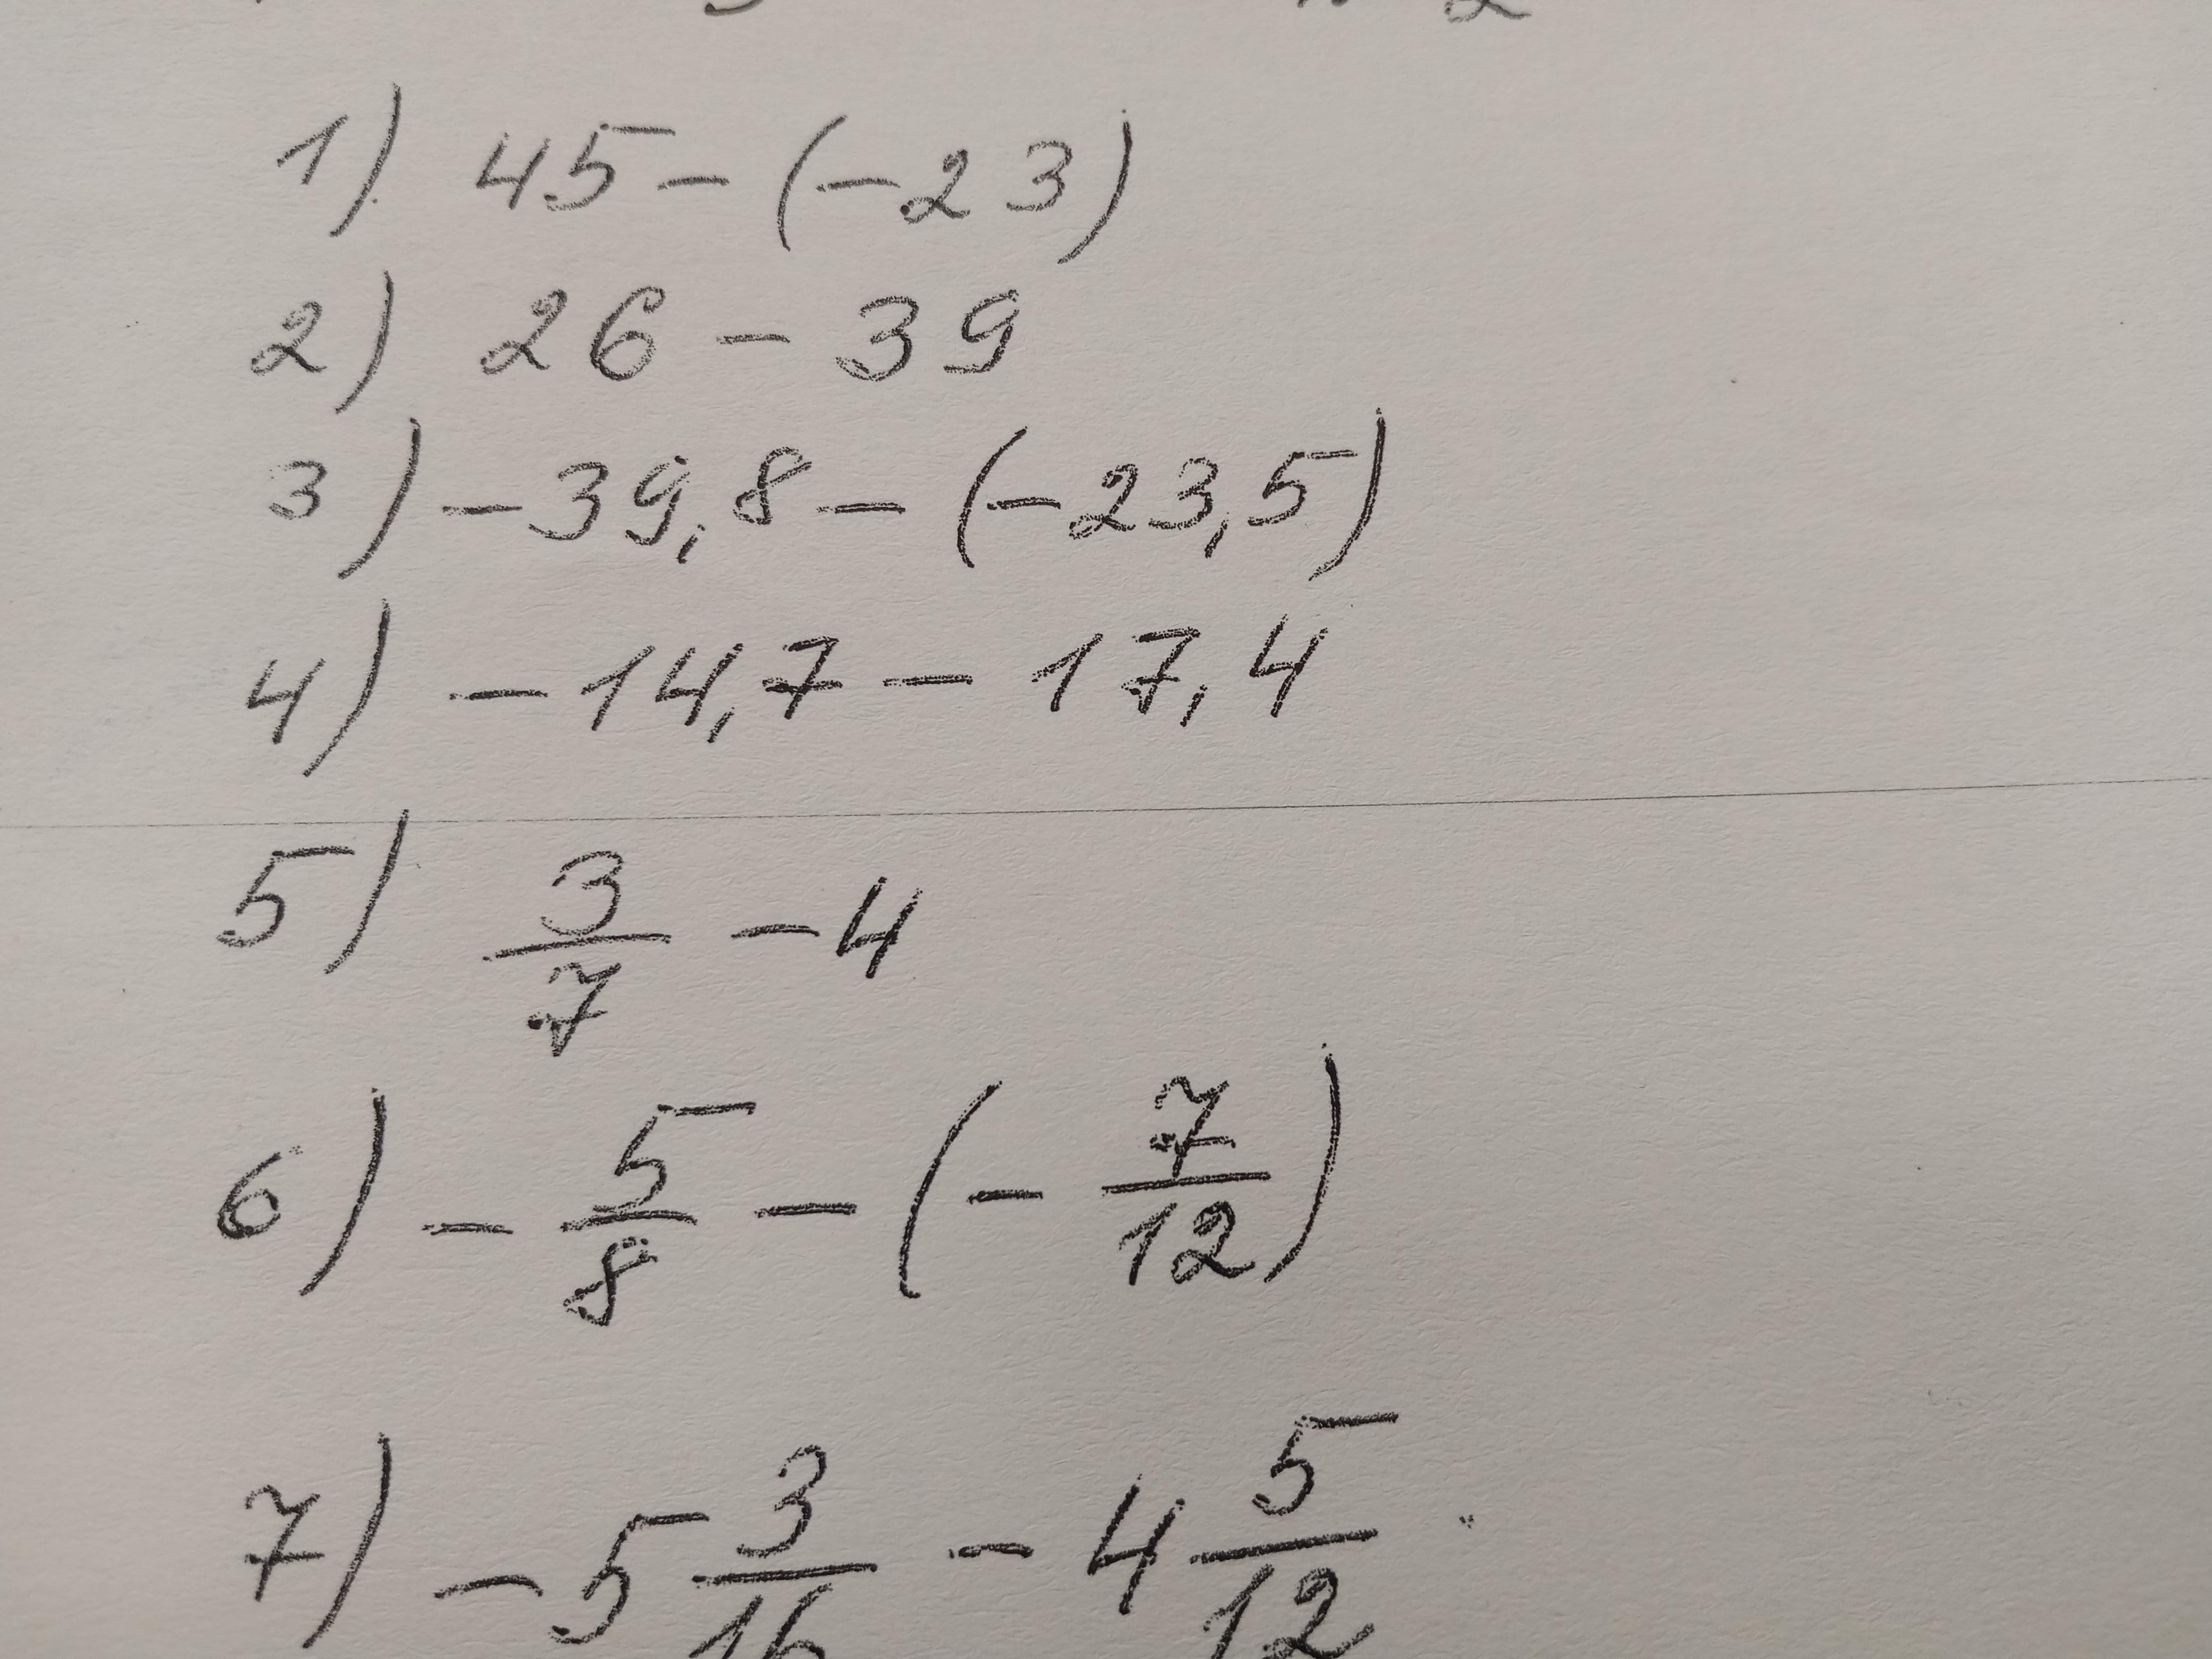 1) 45 - (-23)
2) 26 - 39
3) -39,8 - (-23,5)
4) -14,7 - 17,4
5) 3/7 - 4
6) -5/8 - (-7/12)
7) -5 3/16 - 4 5/12